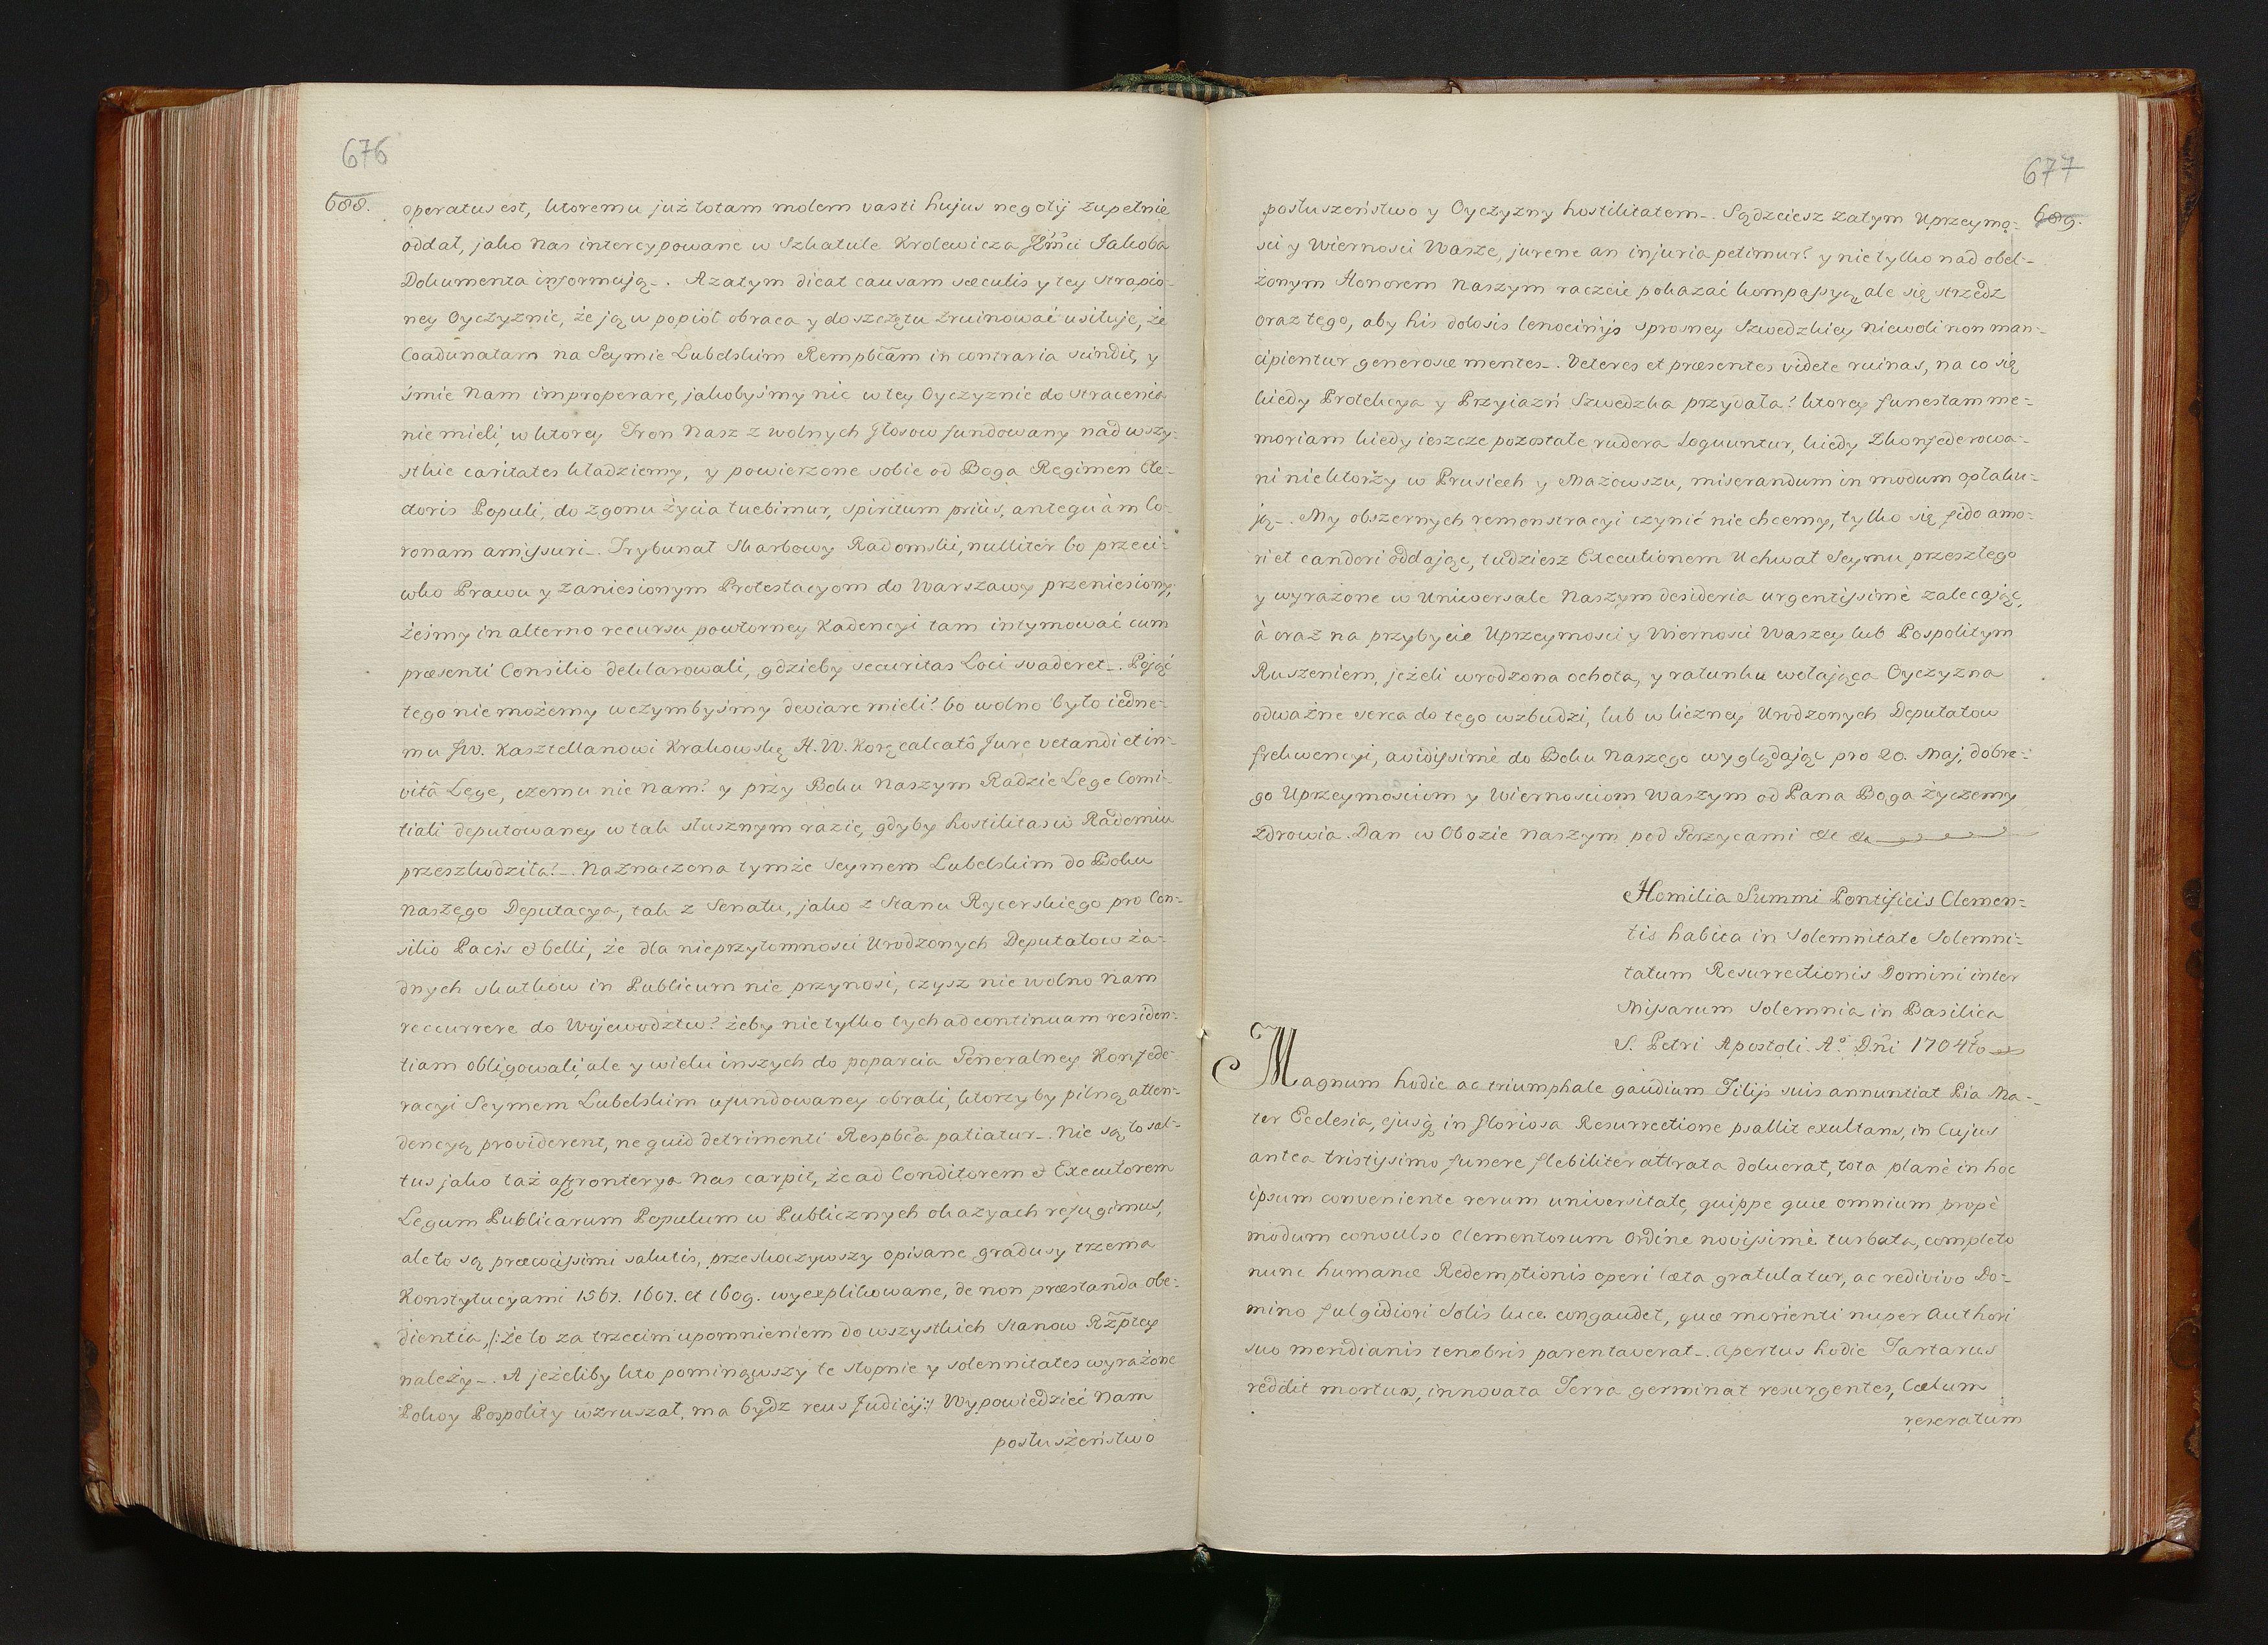 676
688.
operatus est, ktoremu już totam molem vasti hujus negotij zupełnie
oddał, jako Nas intercypowane w Szkatule Krolewicza Jmci Jakoba
Dokumenta informują_. A zatym dicat causam sæculis y tey strapio-
ney Oyczyznie, że ją w popioł obraca y do szczętu zruinować usiłuje, że
Coadunatam na Seymie Lubelskim Rempbcam in contraria scindit, y
śmie Nam improperare, jakobyśmy nic w tey Oyczyznie do stracenia
nie mieli, w ktorey Tron Nasz z wolnych głosow fundowany nad wszy-
stkie caritates kładziemy, y powierzone sobie od Boga Regimen Ele-
ctoris Populi, do zgonu życia tuebimur, spiritum priùs, antequàm Co-
ronam amissuri_. Trybunał Skarbowy Radomski, nulliter bo przeci-
wko Prawu y zaniesionym Protestacyom do Warszawy przeniesiony,
żeśmy in alterno recursu powtorney Kadencyi tam intymować cum
præsenti Consilio deklarowali, gdzieby securitas Loci svaderet_. Pojąć
tego nie możemy w czymbyśmy deviare mieli? bo wolno było iedne-
mu JW. Kasztellanowi Krakowskę H. W. Korę calcatô Jure vetandi et in-
vitâ Lege, czemu nie Nam? y przy Boku Naszym Radzie Lege Comi-
tiali deputowaney w tak słusznym razie, gdyby hostilitas w Radomiu
przeszkodziła?_. Naznaczona tymże Seymem Lubelskim do Boku
Naszego Deputacya, tak z Senatu, jako z Stanu Rycerskiego pro Con-
silio Pacis et belli, że dla nieprzytomności Urodzonych Deputatow ża-
dnych skutkow in Publicum nie przynosi, czysz nie wolno Nam
reccurrere do Wojewodztw? żeby nie tylko tych ad continuam residen-
tiam obligowali, ale y wielu inszych do poparcia Generalney Konfede-
racyi Seymem Lubelskim ufundowaney obrali, ktorzyby pilną atten-
dencyą providerent, ne quid detrimenti Respbca patiatur_. Nie są to sal-
tus jako taż affronterya Nas carpit, że ad Conditorem et Executorem
Legum Publicarum Populum w Publicznych okazyach refugimus,
ale to są præcissimi salutis, przeskoczywszy opisane gradusy trzema
Konstytucyami 1567. 1607. et 1609. wyexplikowane, de non præstanda obe-
dientia, /: że to za trzecim upomnieniem do wszystkich Stanow Rzptey
należy_. A jeżeliby kto pominąwszy te stopnie y solennitates wyrażone
Pokoy Pospolity wzruszał, ma bydz reus Judicij :/ Wypowiedzieć Nam
posłuszeństwo
677
689.
posłuszeństwo y Oyczyzny hostilitatem_. Sądzciesz zatym Uprzeymo-
sci y Wiernosci Wasze, jurene an injuria petimur? y nie tylko nad obel-
żonym Honorem Naszym raczcie pokazać kompassyą, ale się strzedz
oraz tego, aby his dolosis lenocinijs sprosney Szwedzkiey niewoli non man-
cipientur generosæ mentes_. Veteres et præsentes videte ruinas, na co się
kiedy Protekcya y Przyiazń Szwedzka przydała? ktorey funestam me-
moriam kiedy ieszcze pozostałe rudera loquuntur, kiedy Zkonfederowa-
ni niektorzy w Prusiech y Mazowszu, miserandum in modum opłaku-
ją_. My obszernych remonstracyi czynić nie chcemy, tylko się fido amo-
ri et candori oddając, tudziesz Executionem Uchwał Seymu przeszłego
y wyrażone w Uniwersale Naszym desideria urgentissimè zalecając,
à oraz na przybycie Uprzeymosci y Wiernosci Waszey lub Pospolitym
Ruszeniem, jeżeli wrodzona ochota, y ratunku wołająca Oyczyzna
odważne serca do tego wzbudzi, lub w liczney Urodzonych Deputatow
frekwencyi, avidissimè do Boku Naszego wyglądając pro 20. Maj, dobre-
go Uprzeymosciom y Wiernosciom Waszym od Pana Boga życzemy
zdrowia. Dan w Obozie Naszym pod Perzycami &c &c
Homilia Summi Pontificis Clemen-
tis habita in Solemnitate Solemni-
tatum Resurrectionis Domini inter
Missarum Solemnia in Basilica
S. Petri Apostoli. Aº Dni 1704to
Magnum hodie ac triumphale gaudium Filijs suis annuntiat Pia Ma-
ter Ecclesia, ejusq in gloriosa Resurrectione psallit exultans, in Cujus
antea tristissimo funere flebiliter attrata doluerat, tota planè in hoc
ipsum conveniente rerum universitate, quippe quæ omnium propè
modum convulso Elementorum Ordine novissimè turbata, completo
nunc humanæ Redemptionis operi læta gratulatur, ac redivivo Do-
mino fulgidiori Solis luce congaudet, quæ morienti nuper Authori
suo meridianis tenebris parentaverat_. Apertus hodie Tartarus
reddit mortuos, innovata Terra germinat resurgentes, Cælum
reseratum